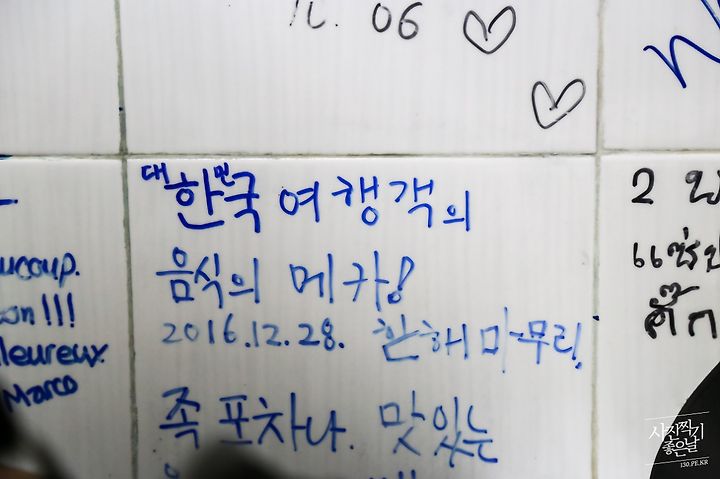 06
대한민국 여행객의
음식의 메카!
2016.12.28. 한해 마무리.
족 포차나. 맛있는
ucoup.
on!!!
leureux
Marco
2
사진찍기
좋은날
130.PE.KR